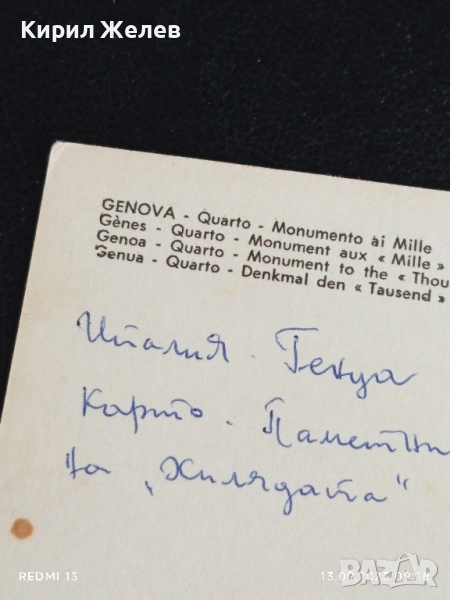 Кирил Желев
GENOVA - Quarto - Monumento ài Mille
Gènes - Quarto - Monument aux « Mille »
Genoa - Quarto - Monument to the « Thou
Genua - Quarto - Denkmal den « Tausend »
Италия. Генуа
Карто. Паметни
на „Хилядата"
REDMI 13
BAZAR